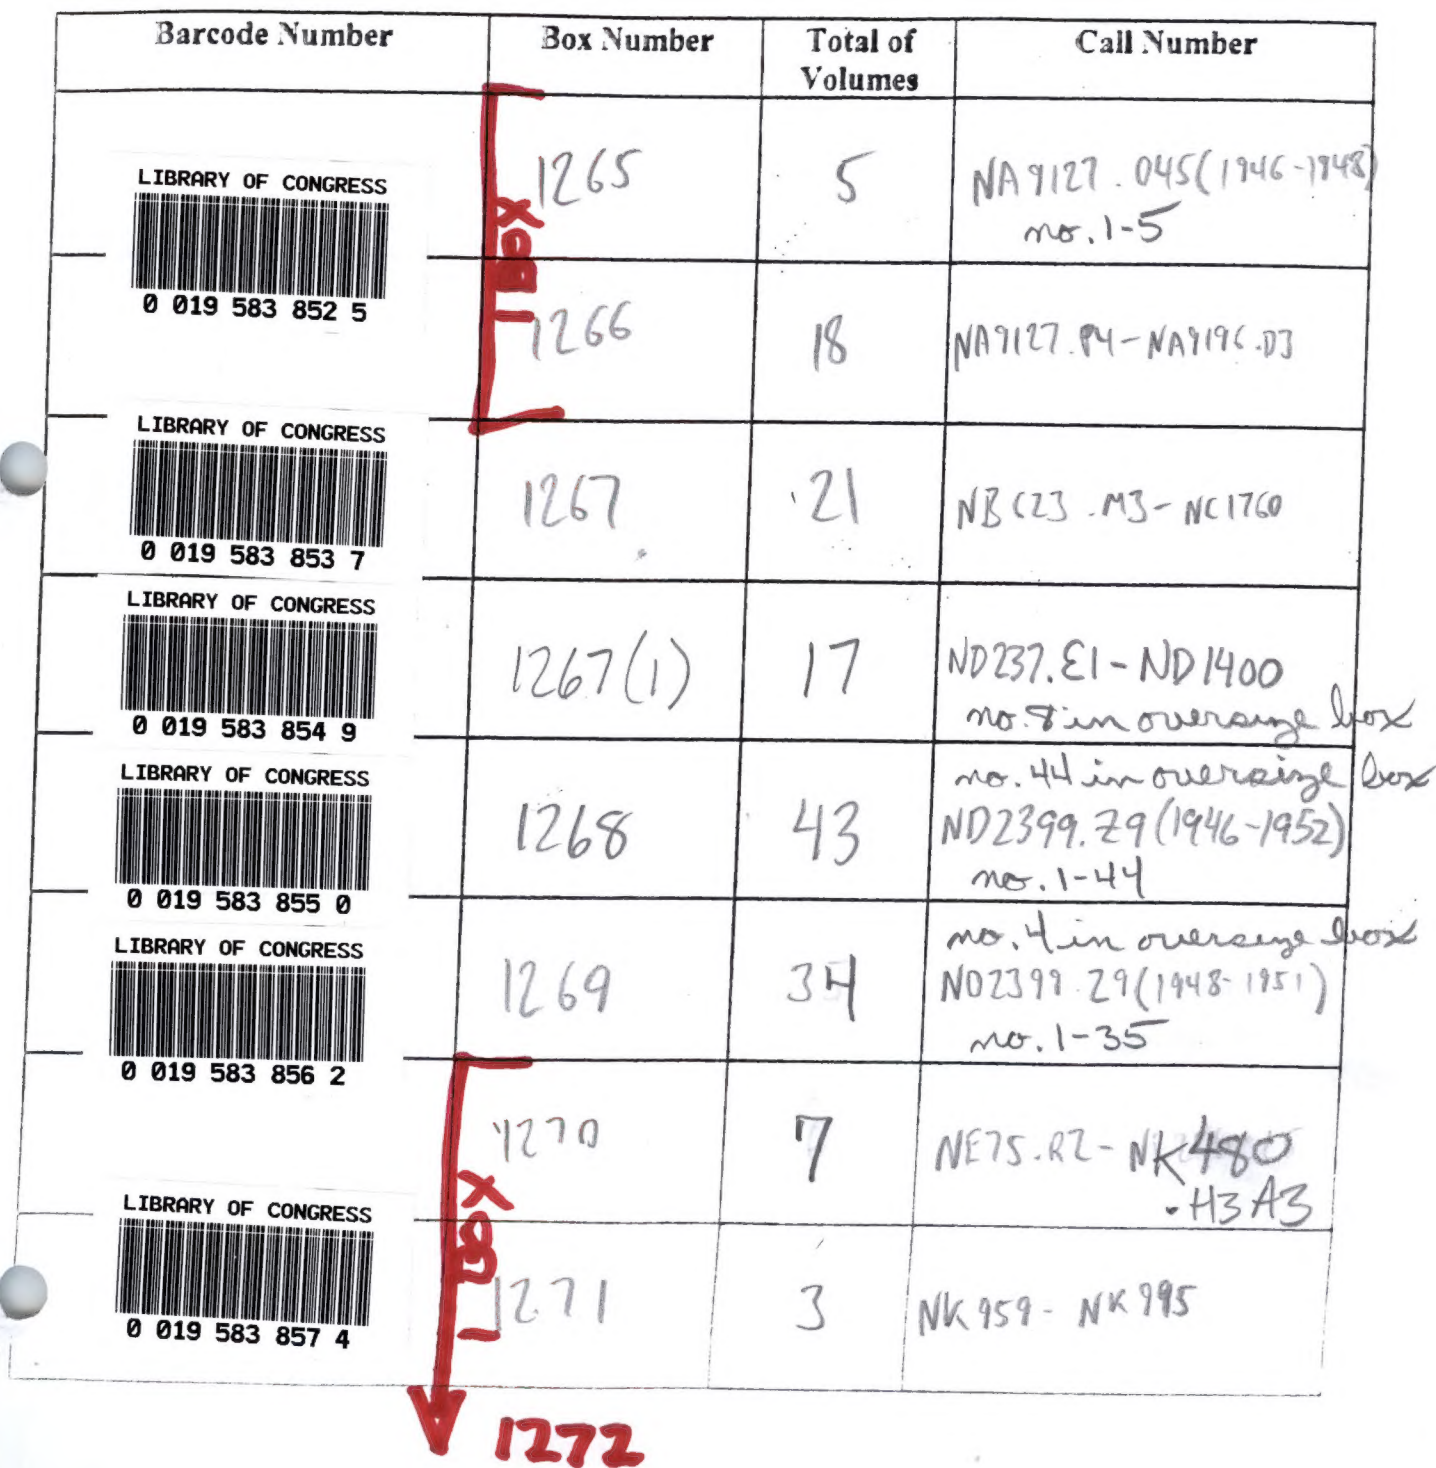 Barcode Number Box Number Total of Volumes Call Number
LIBRARY OF CONGRESS
0 019 583 852 5
1 BOX
1265 5 NA9127.O45(1946-1948)
no. 1-5
1266 18 NA9127.P4-NA9196.D3
LIBRARY OF CONGRESS
0 019 583 853 7
1267 21 NB623.M3-NC1760
LIBRARY OF CONGRESS
0 019 583 854 9
1267(1) 17 ND237.E1-ND1400
no. 8 in oversize box
LIBRARY OF CONGRESS
0 019 583 855 0
no. 44 in oversize box
1268 43 ND2399.Z9(1946-1952)
no. 1-44
LIBRARY OF CONGRESS
0 019 583 856 2
no. 4 in oversize box
1269 34 ND2399.Z9(1948-1951)
no. 1-35
1270 7 NE75.R2-NK480
.H3A3
LIBRARY OF CONGRESS
0 019 583 857 4
1 BOX
1271 3 NK959-NK995
1272